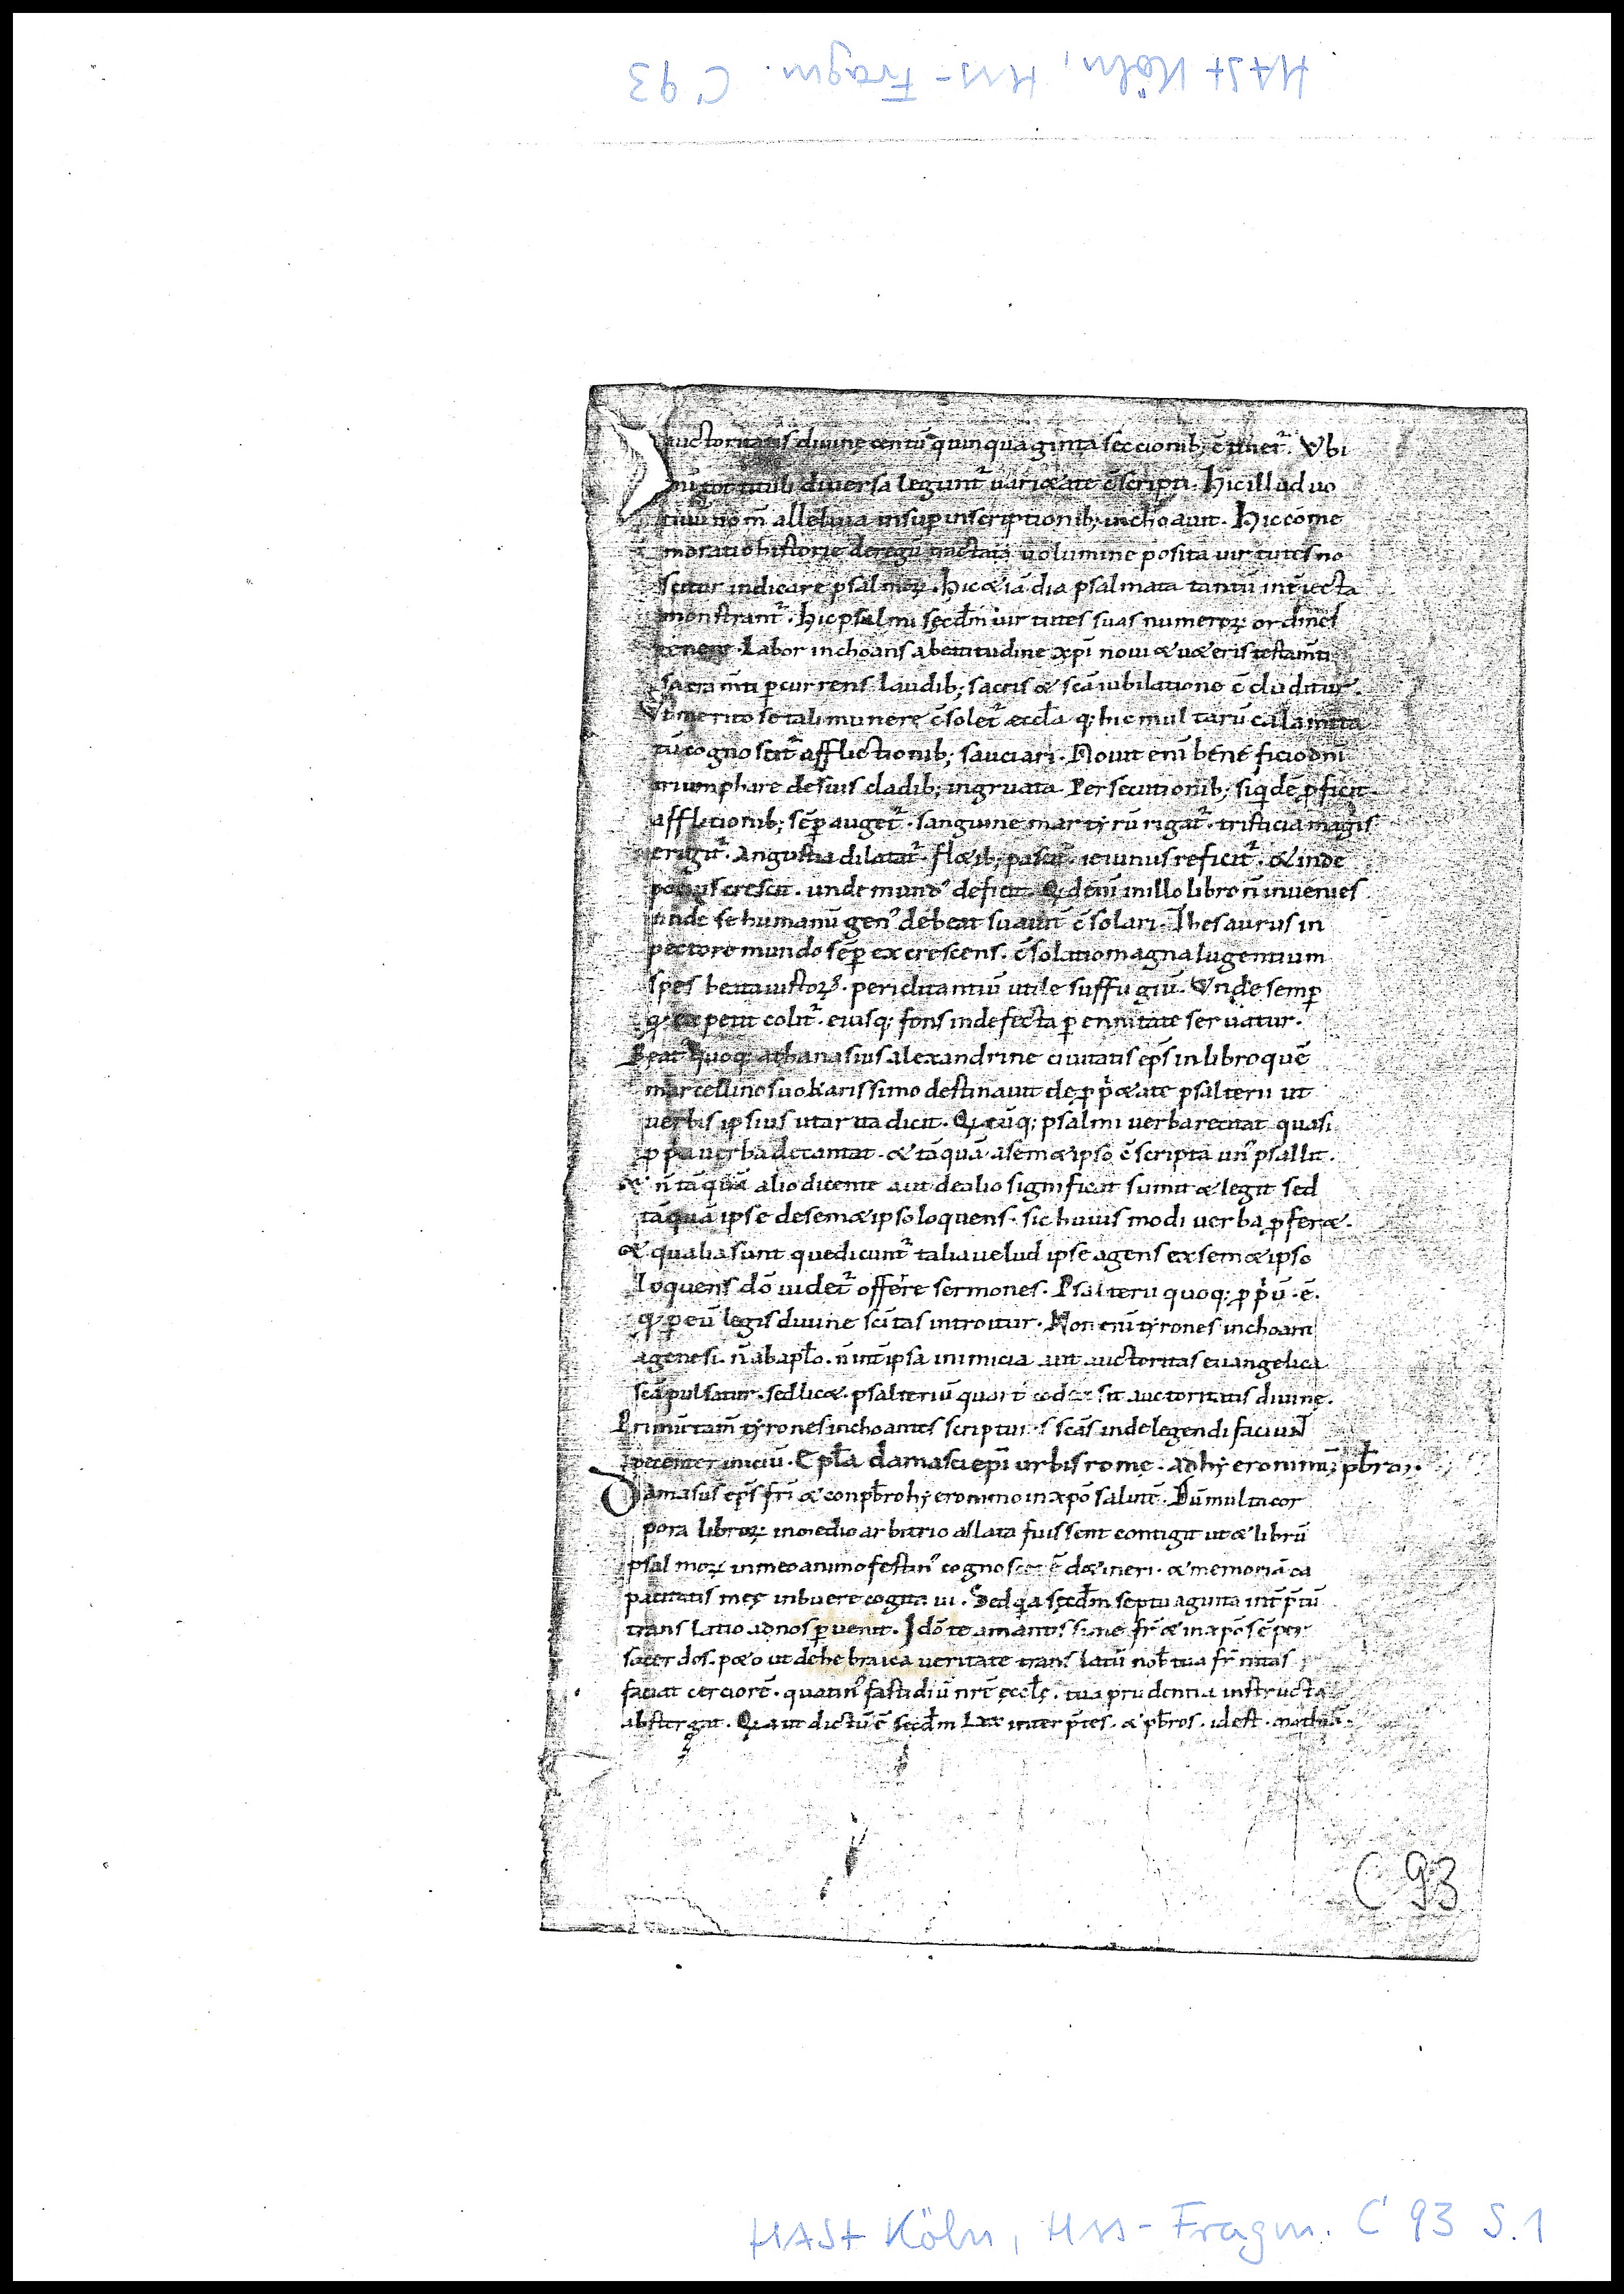 HASt Köln, Hss-Fragm. C 93
auctoritatis diuinę centū quinquaginta seccionib; c̄tinet᷑. Vbi
tituli diuersa legunt᷑ uarietate c̄scripti. Hic illud uo
alleluia insup inscriptionib; inchoauit. Hic cōme
moratio historię de regū tractata uolumine posita uirtutes no
scitur indicare psalmoꝝ. Hic & iā diapsalmata tantū int̄iecta
monstrant᷑. hic psalmi sęcdm̄ uirtutes suas numeroꝝ ordines
tenent. Labor inchoans a beatitudine xp̄i noui & u&eris testam̄ti
sacram̄ti ꝑcurrens laudib; sacris & scā iubilatione c̄cluditur.
Vt merito se tali munere c̄solet᷑ eccl̄a q; hic multarū calamita
tū cognoscit᷑ afflictionib; sauciari. Nouit enī beneficio dn̄i
triumphare de suis cladib; ingruata. Persecutionib; siqdē ꝓficit
afflictionib; sēꝑ auget᷑. sanguine martyrū rigat᷑. tristicia magis
erigit᷑. Angustia dilatat᷑. fl&ib; pascit᷑. ieiuniis reficit᷑. & inde
potius crescit. unde mund᷒ deficit. Qd enī in illo libro n̄ inuenies
unde se humanū gen᷒ debeat suauit̄ c̄solari. Thesaurus in
pectore mundo sēꝑ excrescens. c̄solatio magna lugentium
spes beata iustoꝝ. periclitantiū utile suffugiū. Vnde semꝑ
petit colit᷑. eiusq; fons indefecta ꝑennitate seruatur.
Beat᷒ quoq; athanasius alexandrine ciuitatis ep̄s in libro quē
marcellino suo karissimo destinauit de ꝓpri&ate psalterii ut
uerbis ipsius utar ita dicit. Qcūq; psalmi uerba recitat quasi
ꝓpria uerba decantat. & tāquā a sem&ipso c̄scripta un᷒ psallit.
& n̄ tāquā alio dicente aut de alio significat sumit & legit sed
tāquā ipse de sem&ipso loquens. sic huius modi uerba ꝓfer&.
& qualia sunt que dicunt᷑ talia uelud ipse agens ex sem&ipso
loquens dō uidet᷑ offerre sermones. Psalterii quoq; ꝓpriū. ē.
q ꝑ eū legis diuine scītas introitur. Non enī tyrones inchoant
a genesi. n̄ ab apl̄o. n̄ int̄ ipsa inimicia aut auctoritas euangelica
scā pulsatur. sed lic&. psalteriū quart᷒ codex sit auctoritatis diuinę.
Primū tam̄ tyrones inchoantes scripturas scās inde legendi faciunt
decenter iniciū. Epl̄a damasci epī urbis romę. ad hyeronimū pb̄rō.
Damasus ep̄s fr̄i & conpb̄ro hyeronimo in xp̄o salutē. Dū multa cor
pora libroꝝ in medio arbitrio allata fuissent contigit ut & librū
psalmoꝝ in meo animo festin᷒ cognoscerē detineri. & memoriā ca
pacitatis męę inbuere cogitaui. Sed qia sęcdm̄ septuaginta int̄p̄tū
translatio ad nos ꝑuenit. Idō te amantissime fr̄ & in xp̄o sēꝑer
sacerdos. p&o ut de hebraica ueritate translatū nob̄ tua fr̄nitas
faciat cerciorē. quatin᷒ fastidiū nr̄ę eccl̄ę. tua prudentia instructa
abstergat. Qia ut dictū ē sęcdm̄ Lxx interp̄tes. & pb̄ros. id est.
C 93
HASt Köln, Hss-Fragm. C 93 S. 1